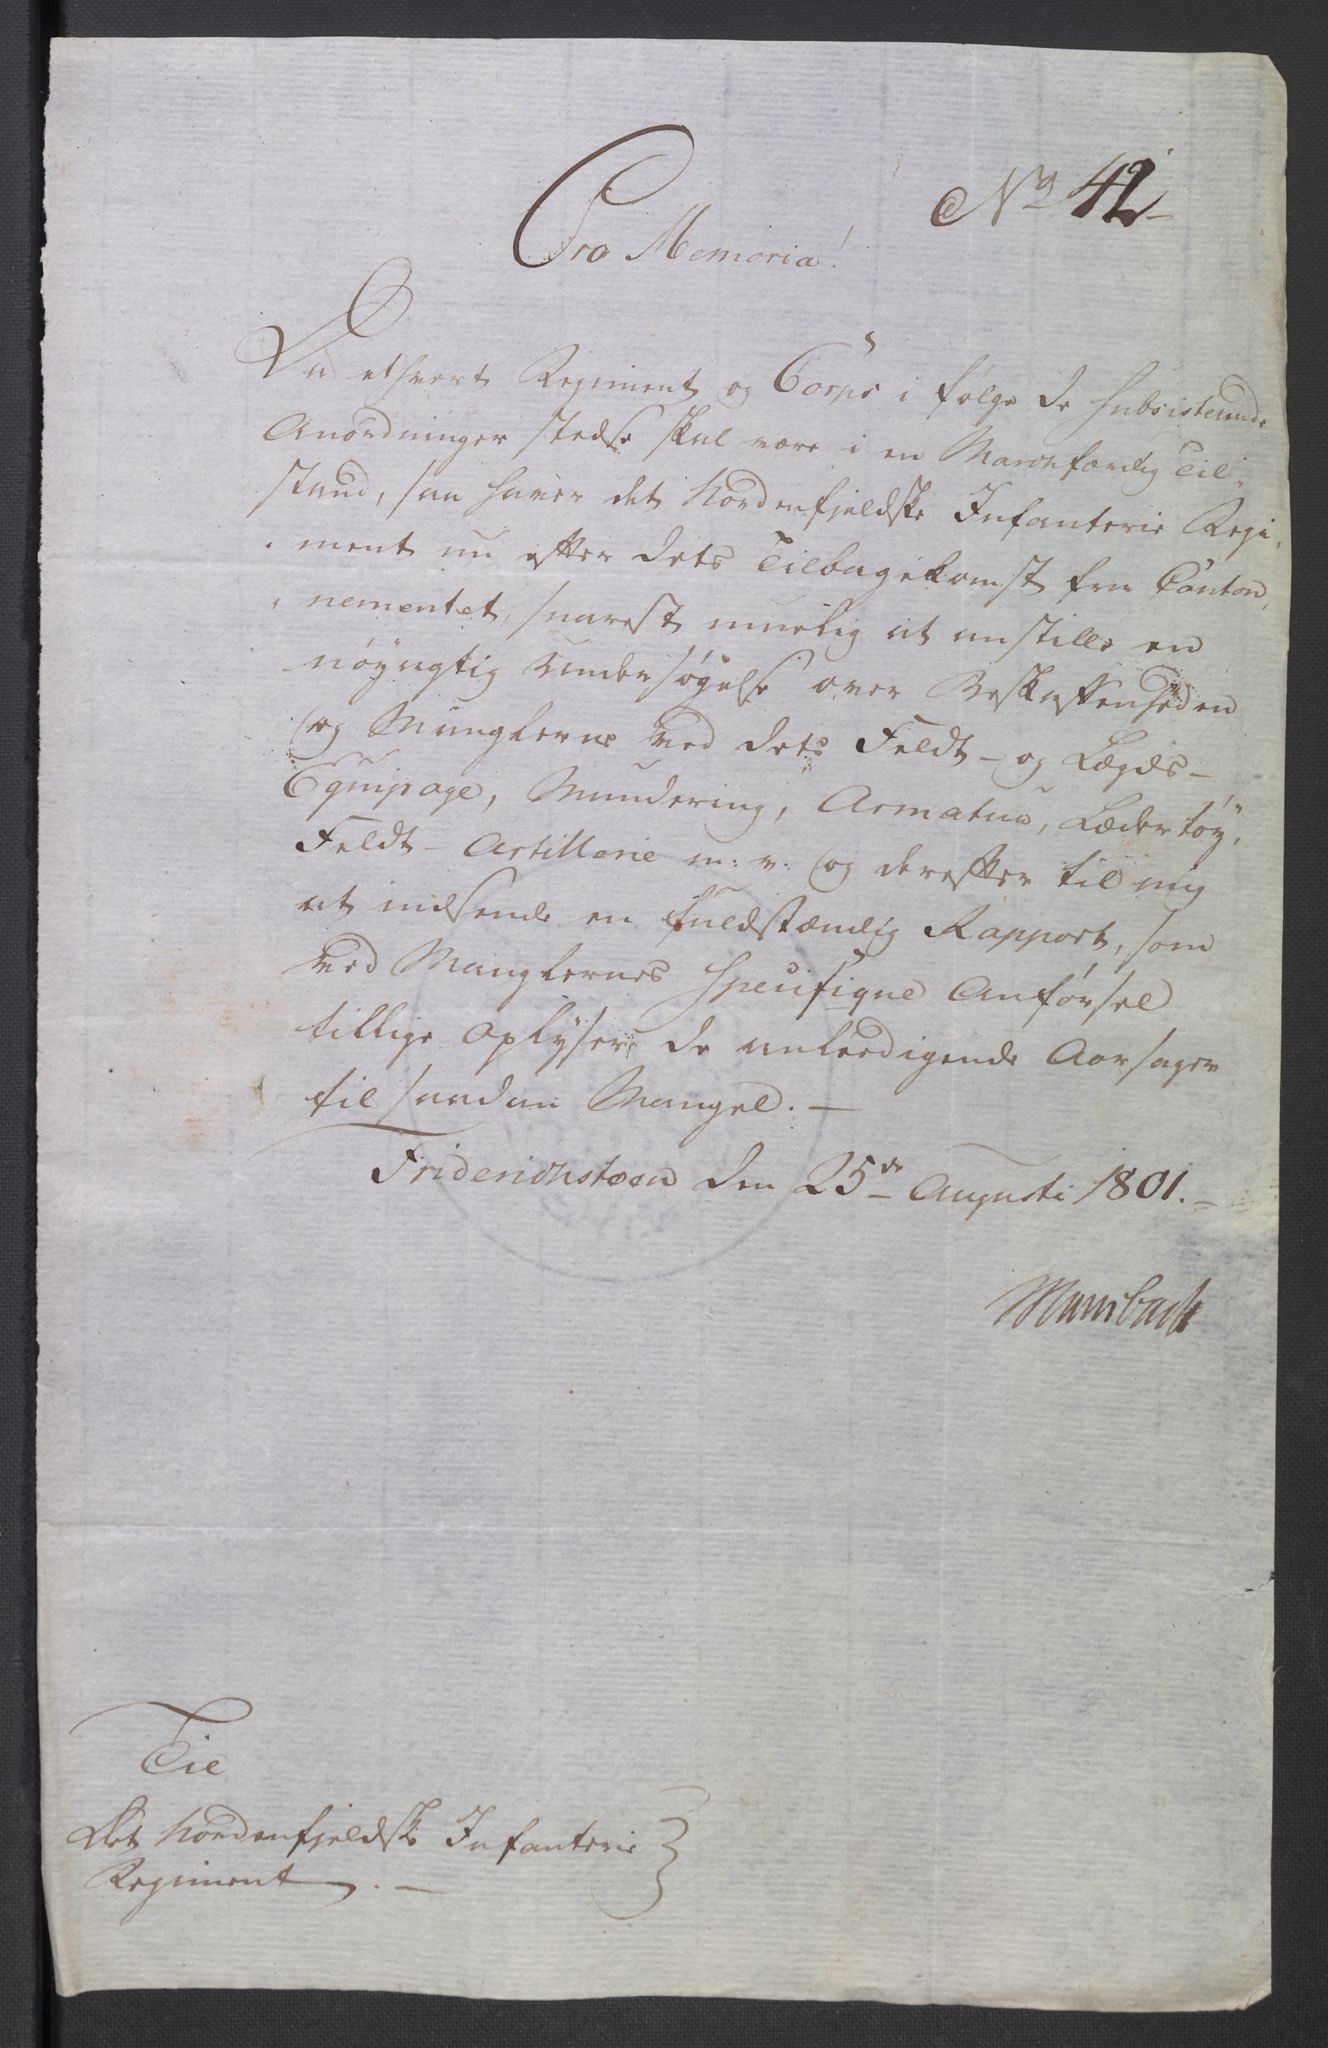 No 42
Pro Memoria!
Da ethvert Regiment og Corps i følge de subsisterende
Anordninger stedse skal være i en Marchfærdig Til-
stand, saa haver det Nordenfjeldske Infanterie Regi-
ment nu efter dets Tilbagekomst fra Canton-
nementet, snarest muelig at anstille en
nøyagtig Undersøgelse over Beskaffenheden
og Manglerne ved dets Feldt- og Lægds-
Equipage, Mundering, Armatur, Lædertöy,
Feldt-Artillerie m: v: og derefter til mig
at indsende en fuldstændig Rapport, som
ved Manglernes Specifique Anförsel
tillige oplyser de anleedigende Aarsager
til saadan Mangel. —
Friderichsteen den 25de Augusti 1801. —
Mansbach
Til
Det Nordenfjeldske Infanterie
Regiment. —